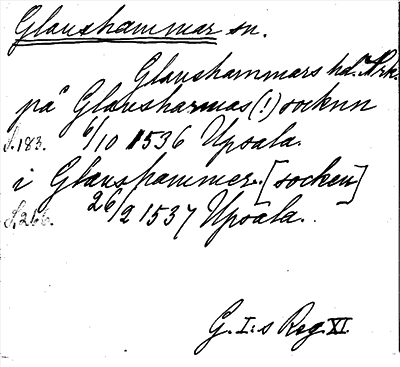 Glanshammar sn.
Glanshammars hd. Nrk.
på Glansharmas (!) socknn
S. 183. 6/10 1536 Upsala.
i Glanshammer. [socken]
S. 266. 26/2 1537 Upsala.
G. I:s Reg. XI.